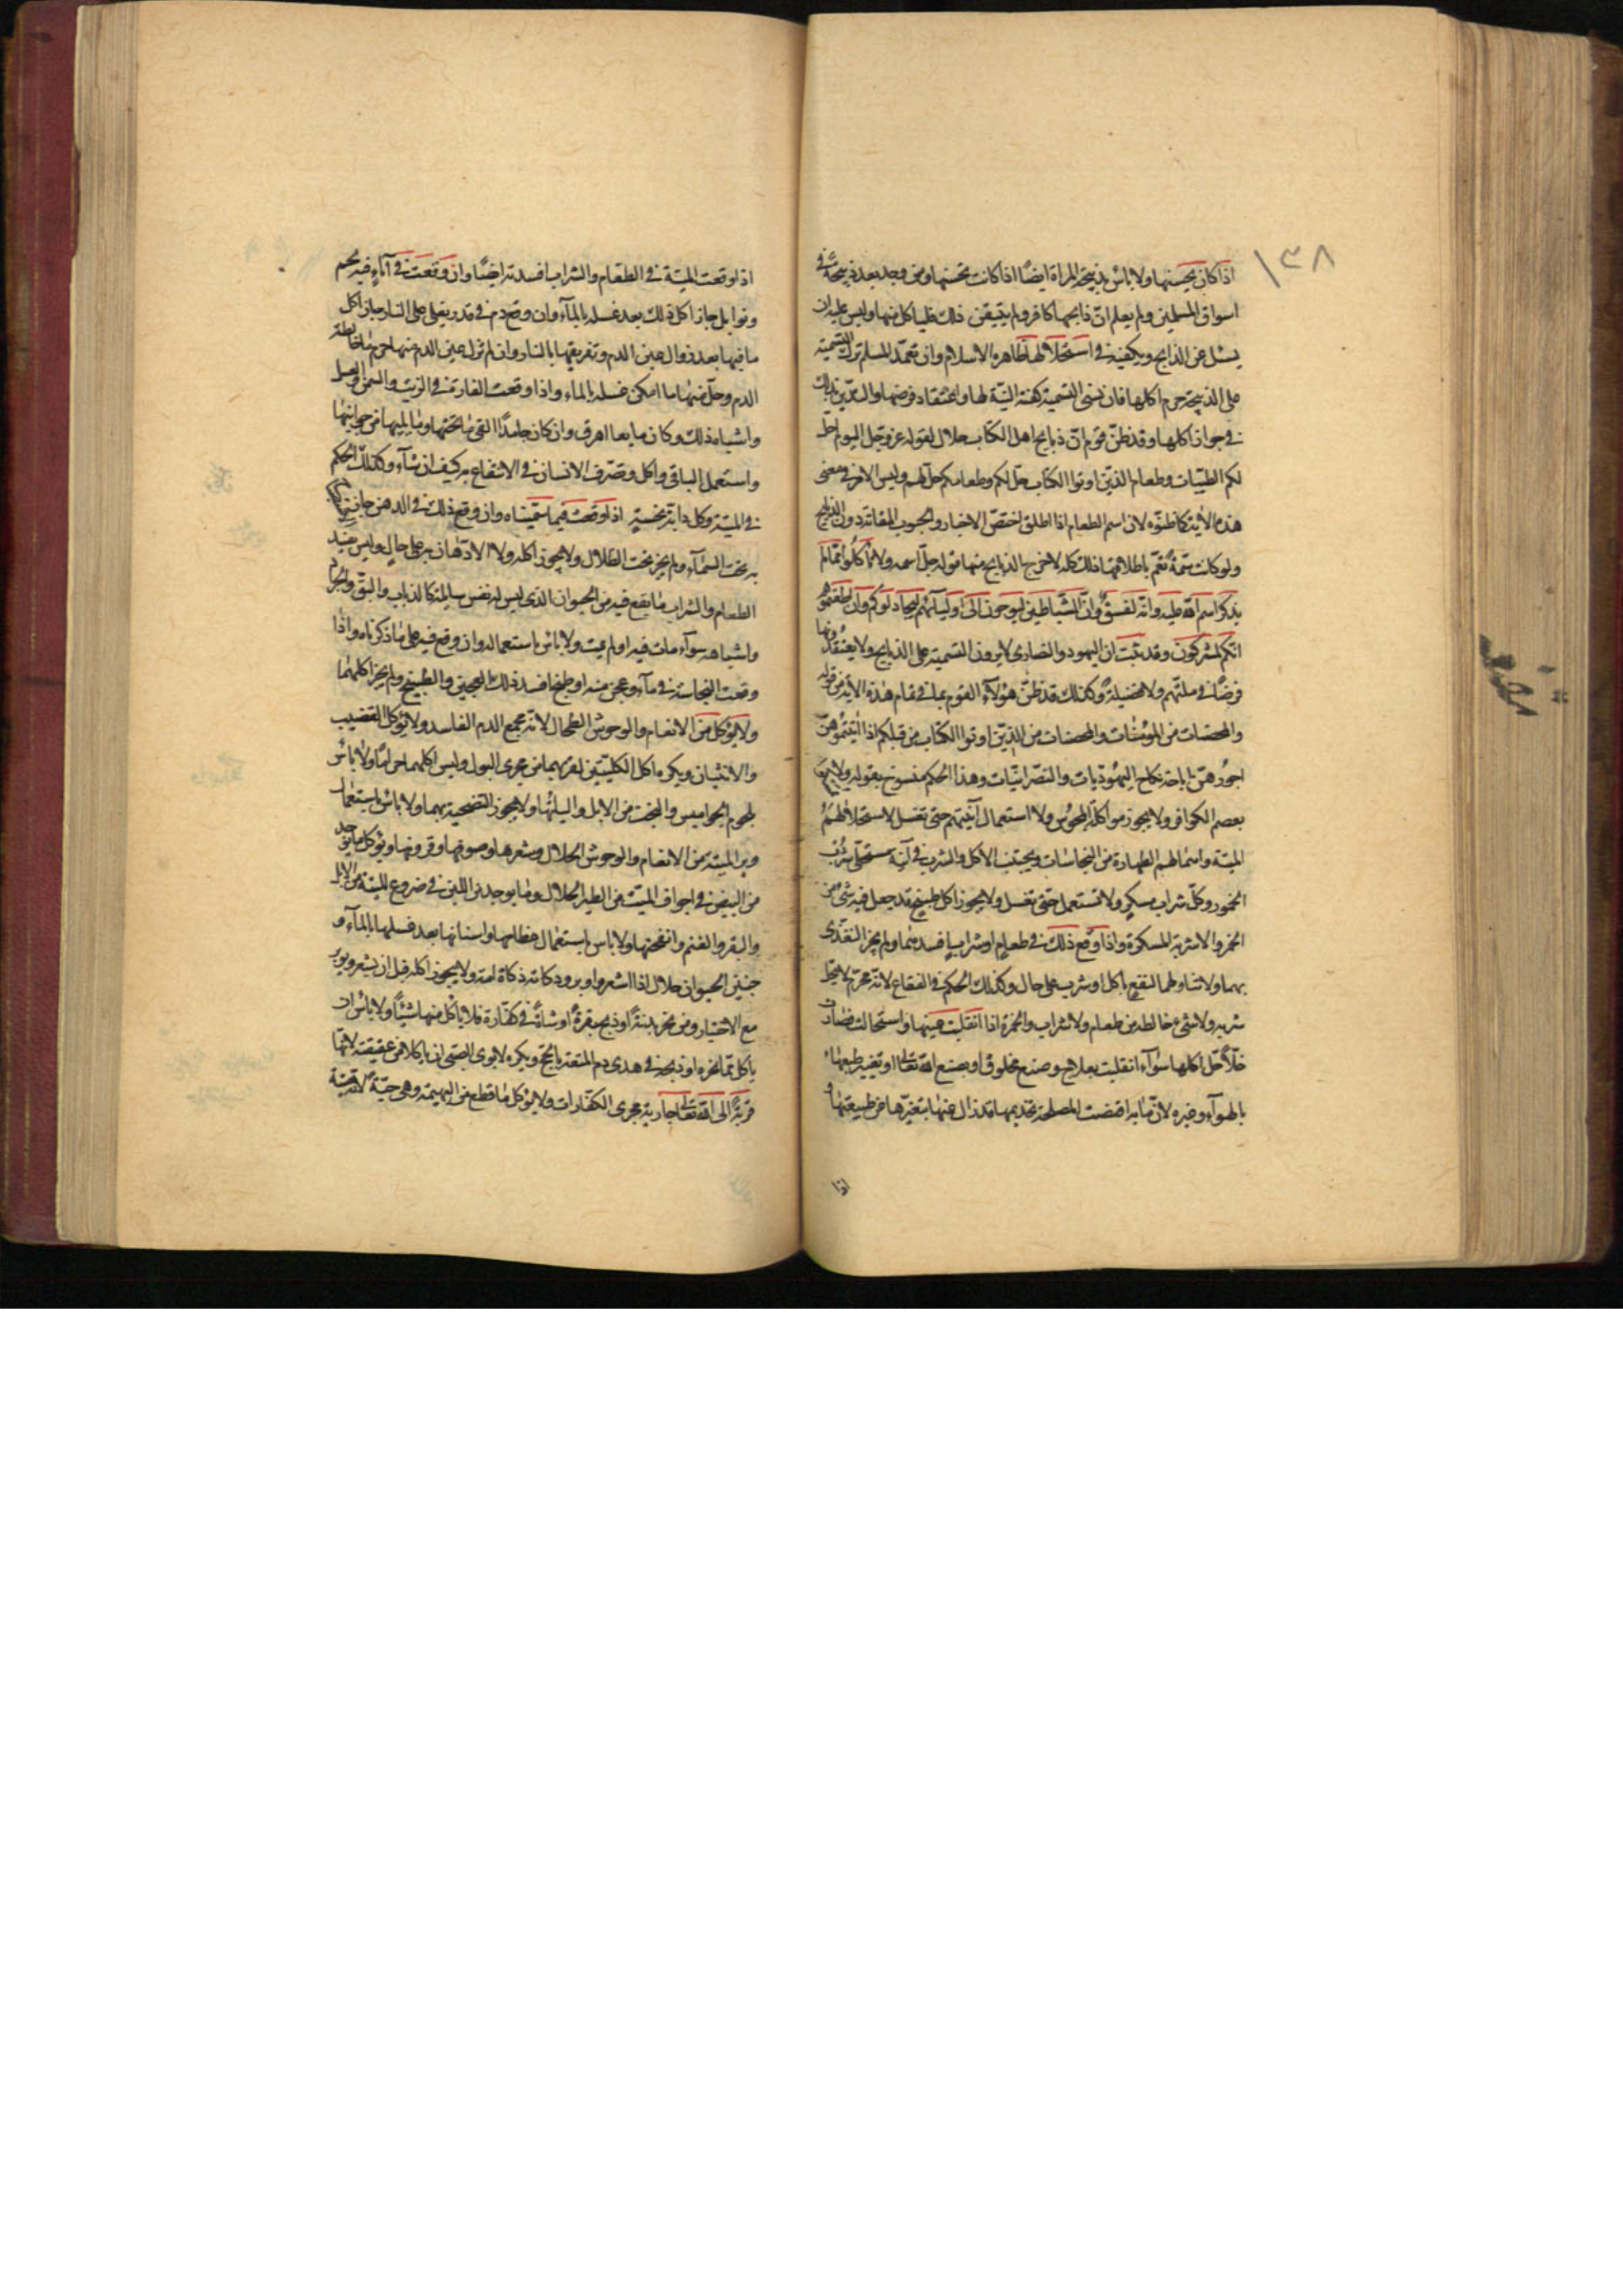 ١٣٨
اذا كان يحسنها ولا باس بذبيحة المراة ايضًا اذا كانت تحسنها ومن وجد بعد ذبيحة في
اسواق المسلمين ولم يعلم انّ ذابحها كافر ولم يتيقن ذلك فلياكل منها وليس عليه ان
يسئل عن الذابح ويكفيه في استحلالها ظاهر الاسلام وان تعمّد المسلم ترك التسمية
على الذبيحة حرم اكلها فان نسى التسمية كفته النيّة لها واعتقاد فرضها والتديّن بذلك
في جواز اكلها وقد ظنّ قوم انّ ذبايح اهل الكتاب حلال لقوله عز وجل اليوم احلّ
لكم الطيّبات وطعام الذين اوتوا الكتاب حلّ لكم وطعامكم حلّ لهم وليس الامر في معنى
هذه الآية كما ظنوّه لان اسم الطعام اذا اطلق اختصّ الاخباز والحبوب المقاتة دون الذبايح
ولو كانت سمة تعمّ باطلاقها ذلك كله لاخرج الذبايح منها قوله جلّ اسمه ولا تاكلوا ممّا لم
يذكر اسم الله عليه وانّه لفسق وانّ الشّياطين ليوحون الى اوليآئهم ليجادلوكم وان اطعتموهم
انكم لمشركون وقد ثبت ان اليهود والنصارى لا يرون التسمية على الذبايح ولا يعتقدونها
فرضًا في ملّتهم ولا فضيلة وكذلك قد ظنّ هؤلآء القوم بما في تمام هذه الآية من قوله
والمحصنات من المؤمنات والمحصنات من الذين اوتوا الكتاب من قبلكم اذا اتيتموهنّ
اجورهنّ اباحة نكاح اليهوديات والنصرانيّات وهذا الحكم منسوخ بقوله ولا تمسكوا
بعصم الكوافر ولا يجوز مواكلة المجوس ولا استعمال آنيتهم حتى تغسل لاستحلالهم
الميتة واهمالهم الطهارة من النجاسات ويجتنب الاكل والشرب في آنية مستحلّي شرب
الخمور وكلّ شراب مسكر ولا تستعمل حتى تغسل ولا يجوز اكل طبيخ قد جعل فيه شئ من
الخمر والاشربة المسكرة واذا وقع ذلك في طعام او شراب افسدهما ولم يجز التغذى
بهما ولا تناولهما لنفع باكل او شرب على حال وكذلك الحكم في الفقاع لانّه محرّم لا يحلّ
شربه ولا شئ خالطه من طعام ولا شراب والخمرة اذا انقلبت عينها واستحالت فصارت
خلًّا حلّ اكلها سوآء انقلبت بعلاج وصنع مخلوق او بصنع الله تعالى او تغيير طبعها
بالهوآء وغيره لانّ ما به اقتضت المصلحة تحريمها قد زال عنها بتغيّرها عن طبيعتها و
اذا
اذا وقعت الميتة في الطعام والشراب افسدته ايضًا وان وقعت في آناء فيه لحم
وتوابل جاز اكل ذلك بعد غسله بالمآء وان وقع دم في قدر يغلى على النار جاز اكل
ما فيها بعد زوال عين الدم وتفريقها بالنار وان لم تزل عين الدم منها حرم ما خالطه
الدم وحلّ منها ما امكن غسله بالماء واذا وقعت الفارة في الزيت والسمن والعسل
واشباه ذلك وكان مايعا اهرق وان كان جامدًا القى ما تحتها وما يليها من جوانبها
واستعمل الباقى واكل وتصرف الانسان في الانتفاع به كيف ان شآء وكذلك الحكم
في الميتة وكل دابة نجسة اذا وقعت فيما سمّيناه وان وقع ذلك في الدهن جاز
به تحت السمآء ولم يجز تحت الظلال ولا يجوز اكله ولا الادهان به على حال وليس يفسد
الطعام والشراب ما يقع فيه من الحيوان الذى ليس له نفس سايلة كالذباب والبقّ والجراد
واشباهه سوآء مات فيه او لم يمت ولا باس باستعماله وان وقع فيه على ما ذكرناه واذا
وقعت النجاسة في مآء وعجن منه او طبخ افسد ذلك العجين والطبيخ ولم يجز اكلهما
ولا يؤكل من الانعام والوحوش الطحال لانه مجمع الدم الفاسد ولا يؤكل القضيب
والانثيان ويكره اكل الكليتين لقربهما من مجرى البول وليس اكلهما حرامًا ولا باس
بلحوم الجواميس والبخت من الابل والبانها ولا يجوز التضحية بهما ولا باس باستعمال
وبر الميتة من الانعام والوحوش الحلال وشعرها وصوفها وقرونها ويؤكل ما يوجد
من البيض في اجواف الميتة من الطير الحلال وما يوجد من اللبن في ضروع الميتة من الابل
والبقر والغنم وانفحتها ولا باس باستعمال عظامها واسنانها بعد غسلها بالمآء و
جنين الحيوان حلال اذا اشعر او اوبر وذكاته ذكاة امه ولا يجوز اكله قبل ان يشعر ويوبر
مع الاختيار ومن نحر بدنة او ذبح بقرة او شاة في كفّارة فلا ياكل منها شيئًا ولا باس ان
ياكل ممّا نحره او ذبحه في هدى دم المتعة بالحج ويكره لابوى الصبى ان ياكلا من عقيقته لانّها
قربة الى الله تعالى جارية مجرى الكفّارات ولا يؤكل ما قطع من البهيمة وهى حيّة لانه ميتة